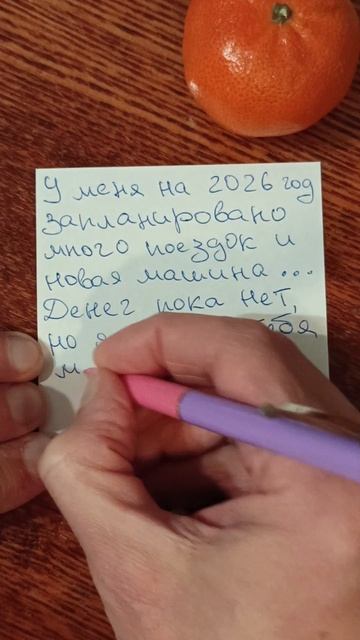 У меня на 2026 год
запланировано
много поездок и
новая машина ...
Денег пока нет,
но я
м